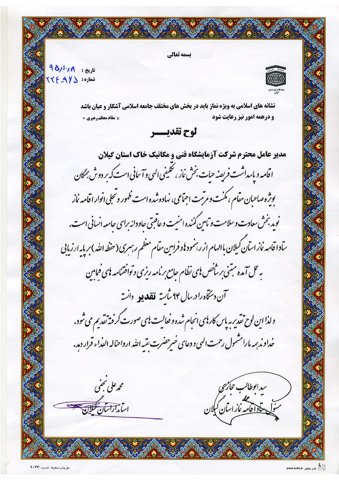 بسمه تعالی
تاریخ : ۹۵/۱۰/۸
شماره : ۲۲۴۰۹۶۵
نشانه های اسلامی به ویژه نماز باید در بخش های مختلف جامعه اسلامی آشکار و عیان باشد
و درهمه امور نیز رعایت شود
« مقام معظم رهبری »
لوح تقدیر
مدیر عامل محترم شرکت آزمایشگاه فنی و مکانیک خاک استان گیلان
اقامه و پاسداشت فریضه حیات بخش نماز ، تکلیفی الهی و آسمانی است که بر دوش همگان
بویژه صاحبان مقام ، مکنت و مرتبت اجتماعی ، نهاده شده است ظهور و تجلی انوار نماز
نوید بخش سعادت و سلامت و تامین کننده امنیت و عاقبتی جاودانه برای جامعه انسانی است .
ستاد اقامه نماز استان گیلان با الهام از رهنمودها و فرامین مقام معظم رهبری (حفظه الله) بر پایه ارزیابی
به عمل آمده مبتنی بر شاخص های نظام جامع برنامه ریزی و توافقنامه های فیمابین
آن دستگاه را در سال ۹۴ شایسته تقدیر دانسته
و لذا این لوح تقدیر به پاس کارهای انجام شده و فعالیت های صورت گرفته تقدیم می شود
خداوند همه ما را مشمول رحمت الهی و دعای خیر حضرت بقیه الله ارواحنا له الفداء قرار دهد.
سید ابوطالب حجازی
مسئول ستاد اقامه نماز استان گیلان
محمد علی نجفی
استاندار استان گیلان